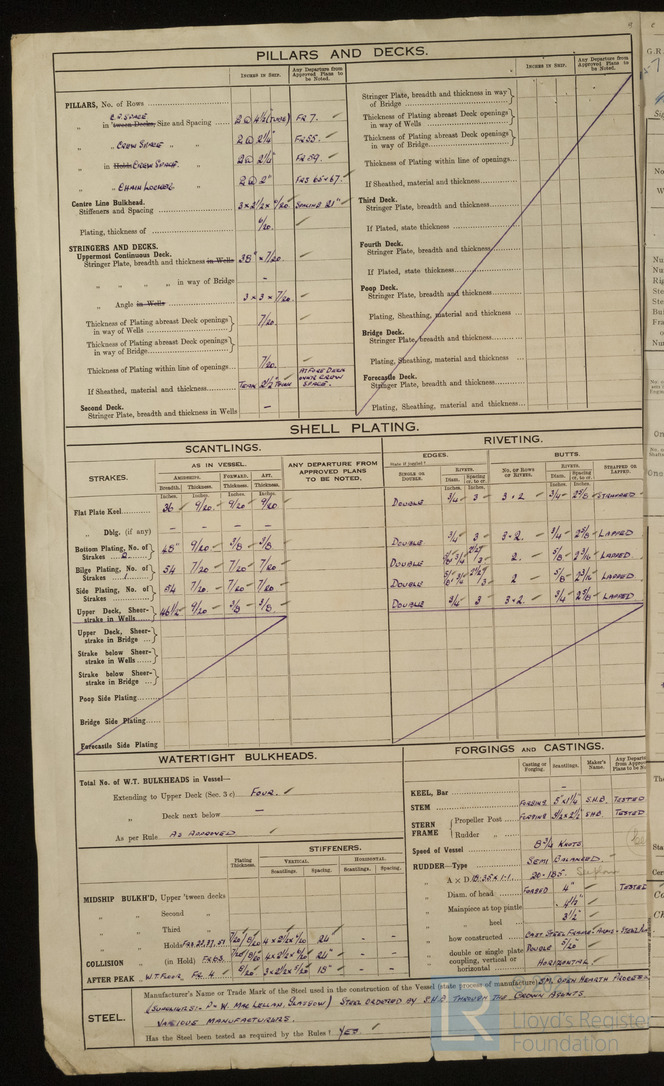 PILLARS AND DECKS.
INCHES IN SHIP.
Any Departure from Approved Plans to be Noted.
PILLARS, No. of Rows
E.R. SPACE
„ in 'tween Decks, Size and Spacing 2 @ 4½ (TUBE) FR 7.
„ „ CREW SPACE „ „ 2 @ 2¼" FR 55.
„ in Holds CREW SPACE. „ 2 @ 2¼" FR 59.
„ „ CHAIN LOCKER „ 2 @ 2" FRS 65 & 67.
Centre Line Bulkhead.
Stiffeners and Spacing 3 x 2½ x 6/20 SPACING 21"
Plating, thickness of 6/20.
STRINGERS AND DECKS.
Uppermost Continuous Deck.
Stringer Plate, breadth and thickness in Wells 38" x 7/20.
„ „ „ „ in way of Bridge –
„ Angle in Wells 3 x 3 x 7/20.
Thickness of Plating abreast Deck openings in way of Wells 7/20.
Thickness of Plating abreast Deck openings in way of Bridge
Thickness of Plating within line of openings 7/20.
If Sheathed, material and thickness TEAK 2½" THICK AT FORE DECK OVER CREW SPACE.
Second Deck.
Stringer Plate, breadth and thickness in Wells –
INCHES IN SHIP.
Any Departure from Approved Plans to be Noted.
Stringer Plate, breadth and thickness in way of Bridge
Thickness of Plating abreast Deck openings in way of Wells
Thickness of Plating abreast Deck openings in way of Bridge
Thickness of Plating within line of openings
If Sheathed, material and thickness
Third Deck.
Stringer Plate, breadth and thickness
If Plated, state thickness
Fourth Deck.
Stringer Plate, breadth and thickness
If Plated, state thickness
Poop Deck.
Stringer Plate, breadth and thickness
Plating, Sheathing, material and thickness
Bridge Deck.
Stringer Plate, breadth and thickness
Plating, Sheathing, material and thickness
Forecastle Deck.
Stringer Plate, breadth and thickness
Plating, Sheathing, material and thickness
SHELL PLATING.
SCANTLINGS.
RIVETING.
STRAKES.
AS IN VESSEL.
AMIDSHIPS. FORWARD. AFT.
Breadth. Thickness. Thickness. Thickness.
Inches. Inches. Inches. Inches.
ANY DEPARTURE FROM APPROVED PLANS TO BE NOTED.
EDGES. BUTTS.
State if joggled?
SINGLE OR DOUBLE.
RIVETS. Diam. Spacing cr. to cr.
NO. OF ROWS OF RIVETS.
RIVETS. Diam. Spacing cr. to cr.
STRAPPED OR LAPPED.
Inches. Inches. Inches. Inches.
Flat Plate Keel 36 9/20 9/20 9/20 DOUBLE 3/4 3 3 x 2 3/4 2 5/8 STRAPPED
„ Dblg. (if any) – – – –
Bottom Plating, No. of Strakes 2 68" 9/20 3/8 3/8 DOUBLE 3/4 3 3 x 2. 3/4 2 5/8 LAPPED
Bilge Plating, No. of Strakes 1 54 7/20 7/20 7/20 DOUBLE 2. 5/8 2 3/16 LAPPED
Side Plating, No. of Strakes 54 7/20 7/20 7/20 DOUBLE 2 5/8 2 3/16 LAPPED
Upper Deck, Sheer-strake in Wells 46½ 9/20 3/8 3/8 DOUBLE 3/4 3 3 x 2. 3/4 2 5/8 LAPPED
Upper Deck, Sheer-strake in Bridge
Strake below Sheer-strake in Wells
Strake below Sheer-strake in Bridge
Poop Side Plating
Bridge Side Plating
Forecastle Side Plating
WATERTIGHT BULKHEADS.
Total No. of W.T. BULKHEADS in Vessel—
Extending to Upper Deck (Sec. 3 c) FOUR.
„ Deck next below –
As per Rule AS APPROVED
Plating Thickness.
STIFFENERS.
VERTICAL. HORIZONTAL.
Scantlings. Spacing. Scantlings. Spacing.
MIDSHIP BULKH'D, Upper 'tween decks
„ „ Second „
„ „ Third „
„ „ Holds 7/20 6/20 4 x 2½ x 6/20 24" – –
COLLISION „ (in Hold) FR 63. 7/20 6/20 4 x 2½ x 6/20 24" – –
AFTER PEAK „ W.T. FLOOR, FR. 4 6/20 3 x 2½ x 6/20 18" – –
FORGINGS AND CASTINGS.
Casting or Forging. Scantlings. Maker's Name. Any Departure from Approved Plans to be Noted
KEEL, Bar –
STEM FORGING 5" x 1¼" S.H.B. TESTED
STERN FRAME Propeller Post FORGING 5½ x 2½ S.H.B. TESTED
Rudder „
Speed of Vessel 8¾ KNOTS
RUDDER—Type SEMI BALANCED.
„ A x D 18.35 x 1.1. 20.185
„ Diam. of head FORGED 4" TESTED
„ Mainpiece at top pintle 4½"
„ „ heel 3½"
„ how constructed CAST STEEL FRAME
„ double or single plate DOUBLE 5/20
„ coupling, vertical or horizontal HORIZONTAL
STEEL.
Manufacturer's Name or Trade Mark of the Steel used in the construction of the Vessel (state process of manufacture) S.M. OPEN HEARTH PROCESS
(SUPPLIERS:- P. & W. MACLELLAN, GLASGOW) STEEL ORDERED BY S.H.B THROUGH THE CROWN AGENTS.
VARIOUS MANUFACTURERS.
Has the Steel been tested as required by the Rules? YES.
LR
Lloyd's Register
Foundation